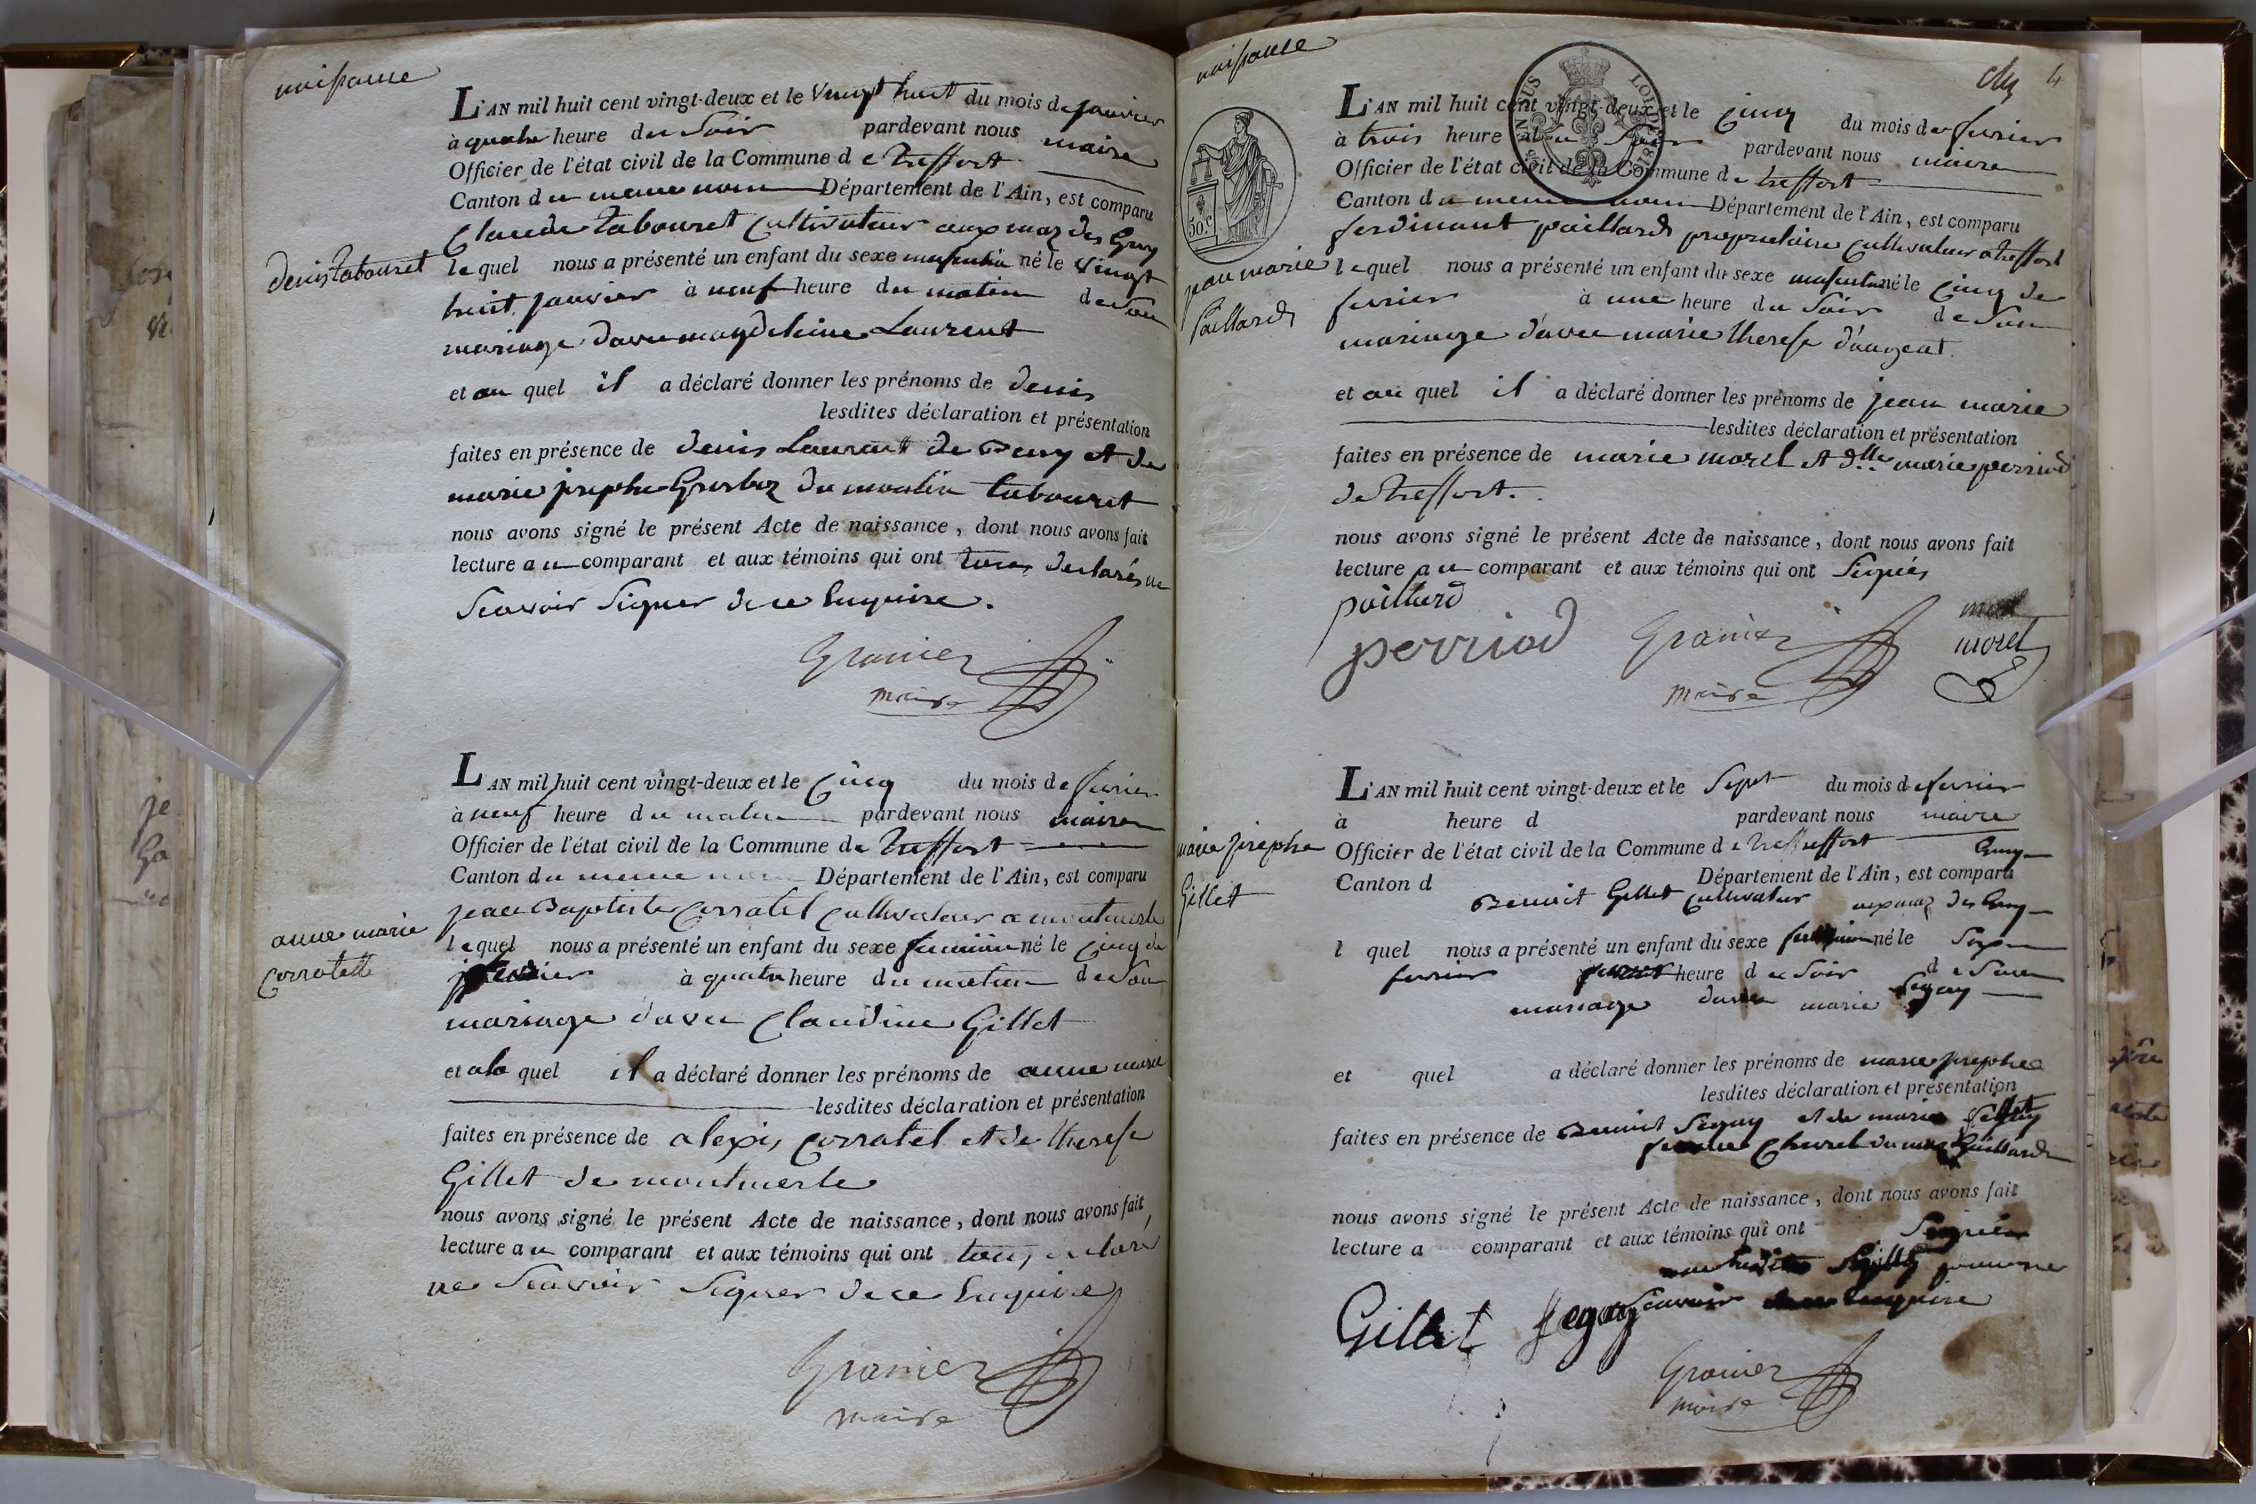 naissance
L'AN mil huit cent vingt-deux et le vingt huit du mois de janvier
à quatre heure du Soir pardevant nous maire
Officier de l'état civil de la Commune de treffort
Canton du meme nom Département de l'Ain, est comparu
Claude tabouret Cultivateur aux maz des
denis tabouret
lequel nous a présenté un enfant du sexe masculin né le vingt
huit janvier à neuf heure du matin de son
mariage d'avec magdeleine Laurent
et au quel il a déclaré donner les prénoms de denis
lesdites déclaration et présentation
faites en présence de denis Laurent de et de
marie josephe du moulin tabouret
nous avons signé le présent Acte de naissance, dont nous avons fait
lecture au comparant et aux témoins qui ont tous declarés ne
Scavoir Signer de ce Enquire.
Granier
maire
L'AN mil huit cent vingt-deux et le Cinq du mois de fevrier
à neuf heure du matin pardevant nous maire
Officier de l'état civil de la Commune de treffort
Canton du meme nom Département de l'Ain, est comparu
jean Baptiste Corratel Cultivateur a montmerle
anne marie
Corratel
lequel nous a présenté un enfant du sexe feminin né le Cinq de
fevrier à quatre heure du matin de son
mariage d'avec Claudine Gillet
et ala quel il a déclaré donner les prénoms de anne marie
lesdites déclaration et présentation
faites en présence de alexis Corratel et de therese
Gillet de montmerle
nous avons signé le présent Acte de naissance, dont nous avons fait
lecture au comparant et aux témoins qui ont tous declaré
ne Scavoir Signer de ce Enquire
Granier
maire
naissance
4
50 c
L'AN mil huit cent vingt-deux et le Cinq du mois de fevrier
à trois heure du Soir pardevant nous maire
Officier de l'état civil de la Commune de treffort
Canton du meme nom Département de l'Ain, est comparu
ferdinant paillard proprietaire Cultivateur a treffort
jean marie
Paillard
lequel nous a présenté un enfant du sexe masculin né le Cinq de
fevrier à une heure du Soir de son
mariage d'avec marie therese d'augeat
et au quel il a déclaré donner les prénoms de jean marie
lesdites déclaration et présentation
faites en présence de marie morel et dlle marie perriod
de treffort.
nous avons signé le présent Acte de naissance, dont nous avons fait
lecture au comparant et aux témoins qui ont Signés
paillard
perriod Granier morel
maire
L'AN mil huit cent vingt-deux et le Sept du mois de fevrier
à heure d pardevant nous maire
Officier de l'état civil de la Commune de treffort
Canton d Département de l'Ain, est comparu
Benoit Gillet Cultivateur aux maz des
marie josephe
Gillet
l quel nous a présenté un enfant du sexe feminin né le Sept
fevrier heure du Soir de son
mariage d'avec marie Seguy
et quel a déclaré donner les prénoms de marie josephe
lesdites déclaration et présentation
faites en présence de Benoit Seguy et de marie
femme Chevrel du maz Paillard
nous avons signé le présent Acte de naissance, dont nous avons fait
lecture a comparant et aux témoins qui ont Signés
Scavoir Enquire
Gillet Seguy
Granier
maire